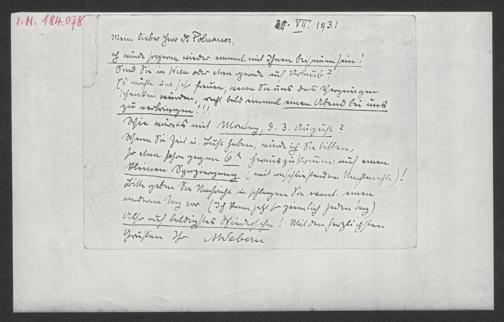 I.N. 184.078
30. VII. 1931
Mein lieber Herr Dr. Polnauer,
ich würde so gerne wieder einmal mit Ihnen beisammen sein!
Sind Sie in Wien oder eben gerade auf Urlaub?
Es möchte uns sehr freuen, wenn Sie uns das Vergnügen
schenken würden, recht bald einmal einen Abend bei uns
zu verbringen!!!
Wie wäre es mit Montag, d. 3. August?
Wenn Sie Zeit u. Lust haben, würde ich Sie bitten,
so etwa schon gegen 6h herauszukommen: auf einen
kleinen Spaziergang (mit anschließendem Nachtmahle)!
Bitte geben Sie Nachricht u. schlagen Sie event. einen
anderen Tag vor (Ich kann jetzt so ziemlich jeden Tag)
Also auf baldigstes Wiedersehn! Mit den herzlichsten
Grüßen Ihr AWebern